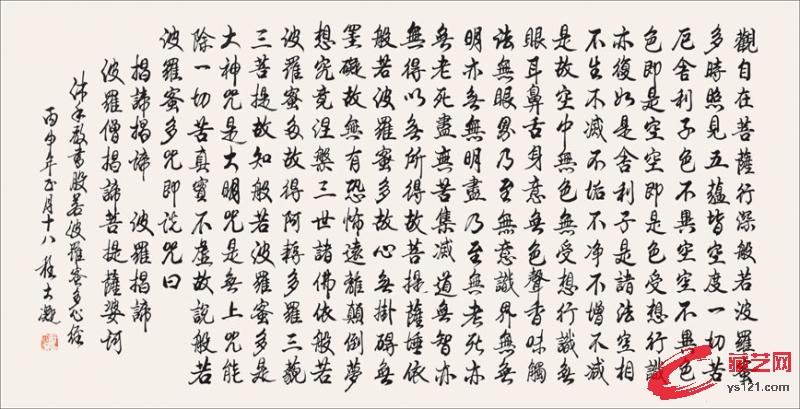 觀自在菩薩行深般若波羅蜜
多時照見五蘊皆空度一切苦
厄舍利子色不異空空不異色
色即是空空即是色受想行識
亦復如是舍利子是諸法空相
不生不滅不垢不净不增不減
是故空中無色無受想行識無
眼耳鼻舌身意無色聲香味觸
法無眼界乃至無意識界無無
明亦無無明盡乃至無老死亦
無老死盡無苦集滅道無智亦
無得以無所得故菩提薩埵依
般若波羅蜜多故心無掛礙無
罣礙故無有恐怖遠離顛倒夢
想究竟涅槃三世諸佛依般若
波羅蜜多故得阿耨多羅三藐
三菩提故知般若波羅蜜多是
大神咒是大明咒是無上咒能
除一切苦真實不虛故說般若
波羅蜜多咒即說咒曰
揭諦揭諦 波羅揭諦
波羅僧揭諦菩提薩婆訶
沐手敬書般若波羅蜜多心經
丙申年正月十八
藏艺网
ys121.com